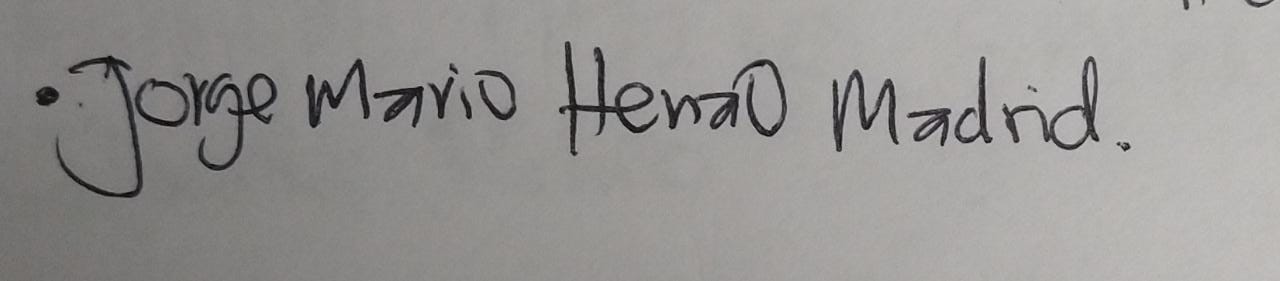 • Jorge Mario Henao Madrid.